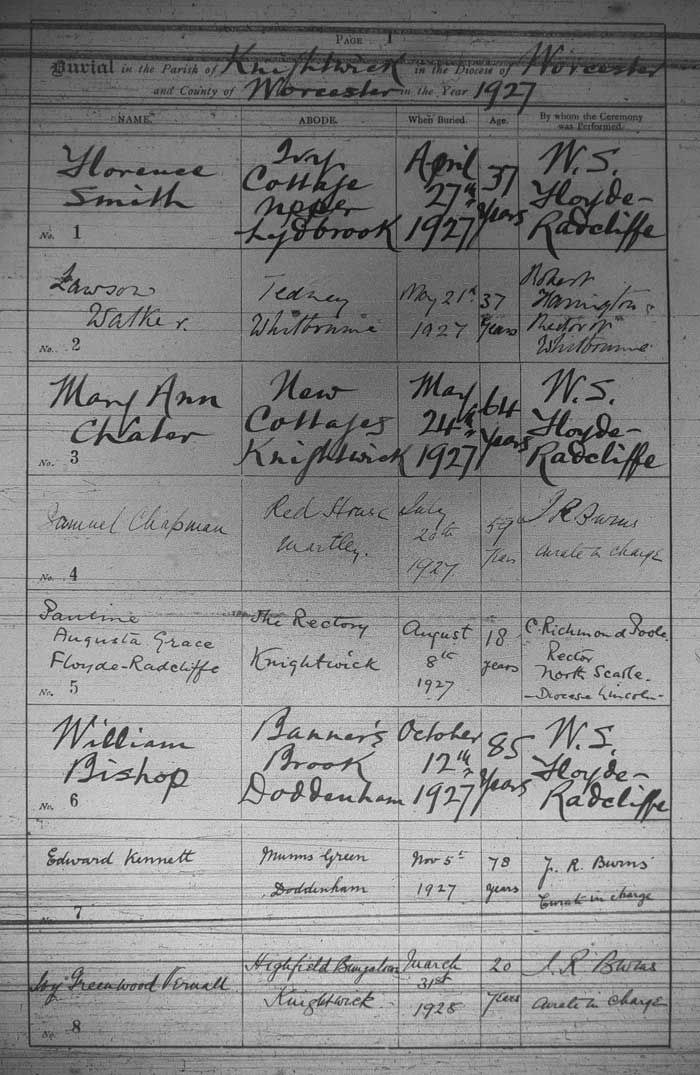 PAGE 1
Burial in the Parish of Knightwick in the Diocese of Worcester
and County of Worcester in the Year 1927
NAME. ABODE. When Buried. Age. By whom the Ceremony was Performed.
Florence
Smith
No. 1
Ivy
Cottage
Upper
Lydbrook
April
27th
1927
37
Years
W. S.
Floyde-
Radcliffe
Lawson
Walker.
No. 2
Tedney
Whitbourne
May 21st
1927
37
Years
Robert
Harrington
Rector of
Whitbourne
Mary Ann
Chater
No. 3
New
Cottages
Knightwick
May
24th
1927
64
Years
W. S.
Floyde-
Radcliffe
Samuel Chapman
No. 4
Red House
Martley.
July
20th
1927
59
Years
J R Burns
Curate in charge
Pauline
Augusta Grace
Floyde-Radcliffe
No. 5
The Rectory
Knightwick
August
8th
1927
18
years
C. Richmond Poole.
Rector
North Scarle.
-Diocese Lincoln-
William
Bishop
No. 6
Banner's
Brook
Doddenham
October
12th
1927
85
Years
W. S.
Floyde-
Radcliffe
Edward Kennett
No. 7
Munns Green
Doddenham
Nov 5th
1927
78
years
J. R. Burns
Curate in charge
Ivy Greenwood Vernall
No. 8
Highfield Bungalow
Knightwick
March
31st
1928
20
years
J. R Burns
Curate in charge